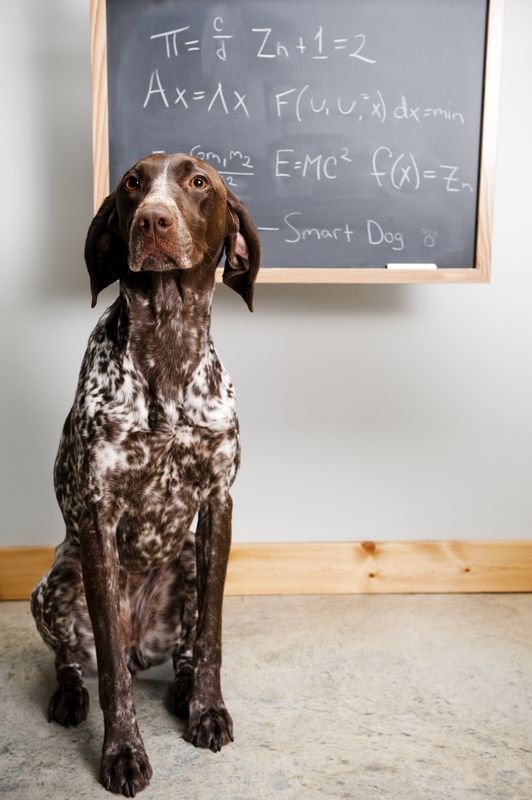 π = c/d Zn + 1 = 2
Ax = λx F(u, u, ²x) dx = min
Gm₁m₂ E=MC² f(x) = Zn
— Smart Dog